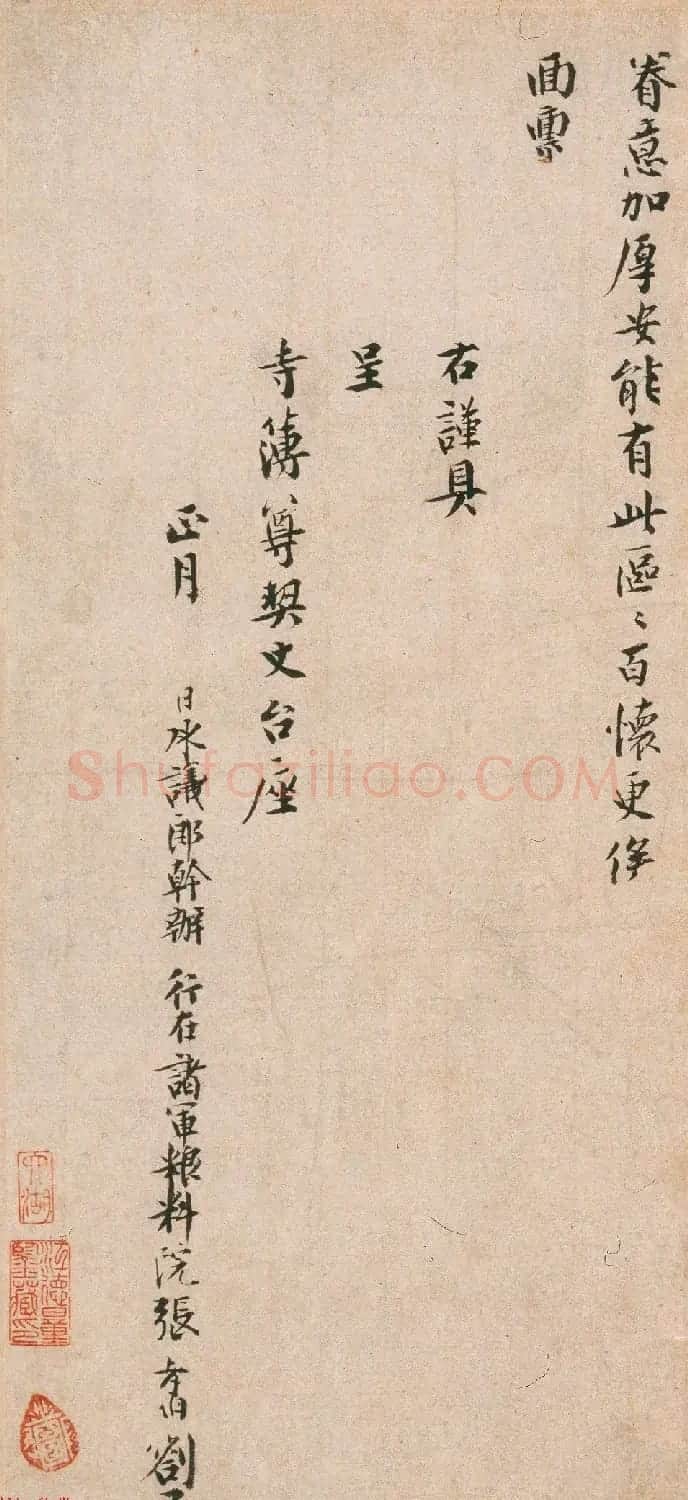 眷意加厚安能有此區〻百懷更俟
面稟
右謹具
呈
寺簿尊契丈台座
正月 日承議郎幹辦 行在諸軍糧料院張 劄
Shufaziliao.COM